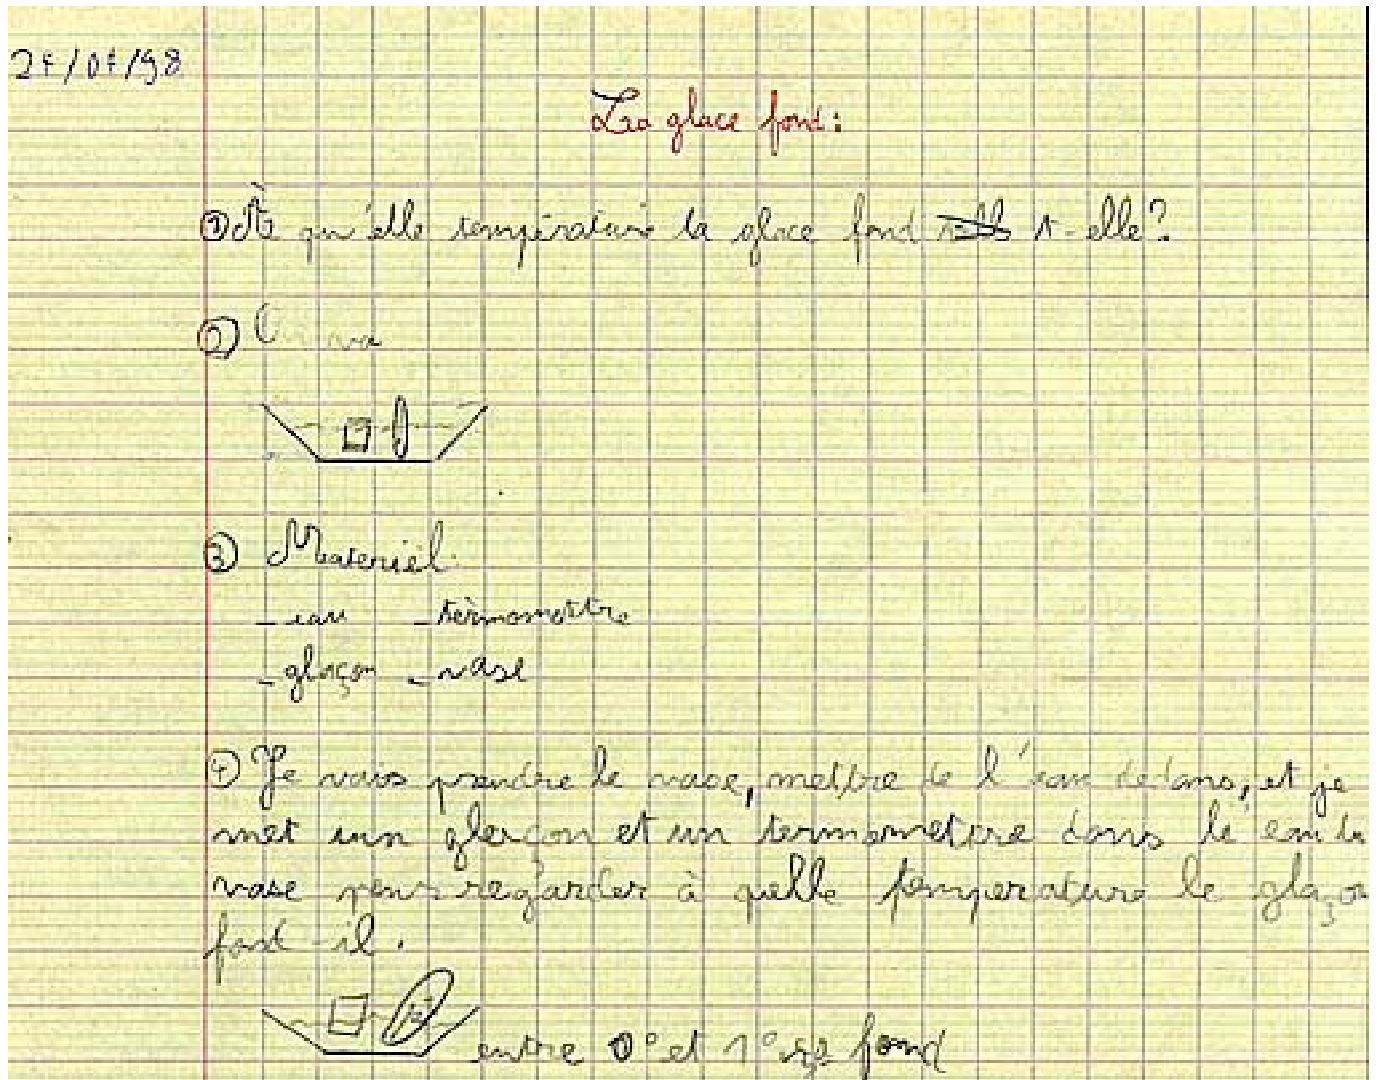 La glace fond :
① À qu'elle température la glace fond t-elle ?
②
③ Materiel
- eau - termomettre
- glaçon - vase
④ Je vais prendre le vase, mettre de l'eau dedans, et je
met un glaçon et un termomettre dans l'eau du
vase pour regarder à quelle temperature le glaçon
fond-il.
entre 0° et 1° ça fond